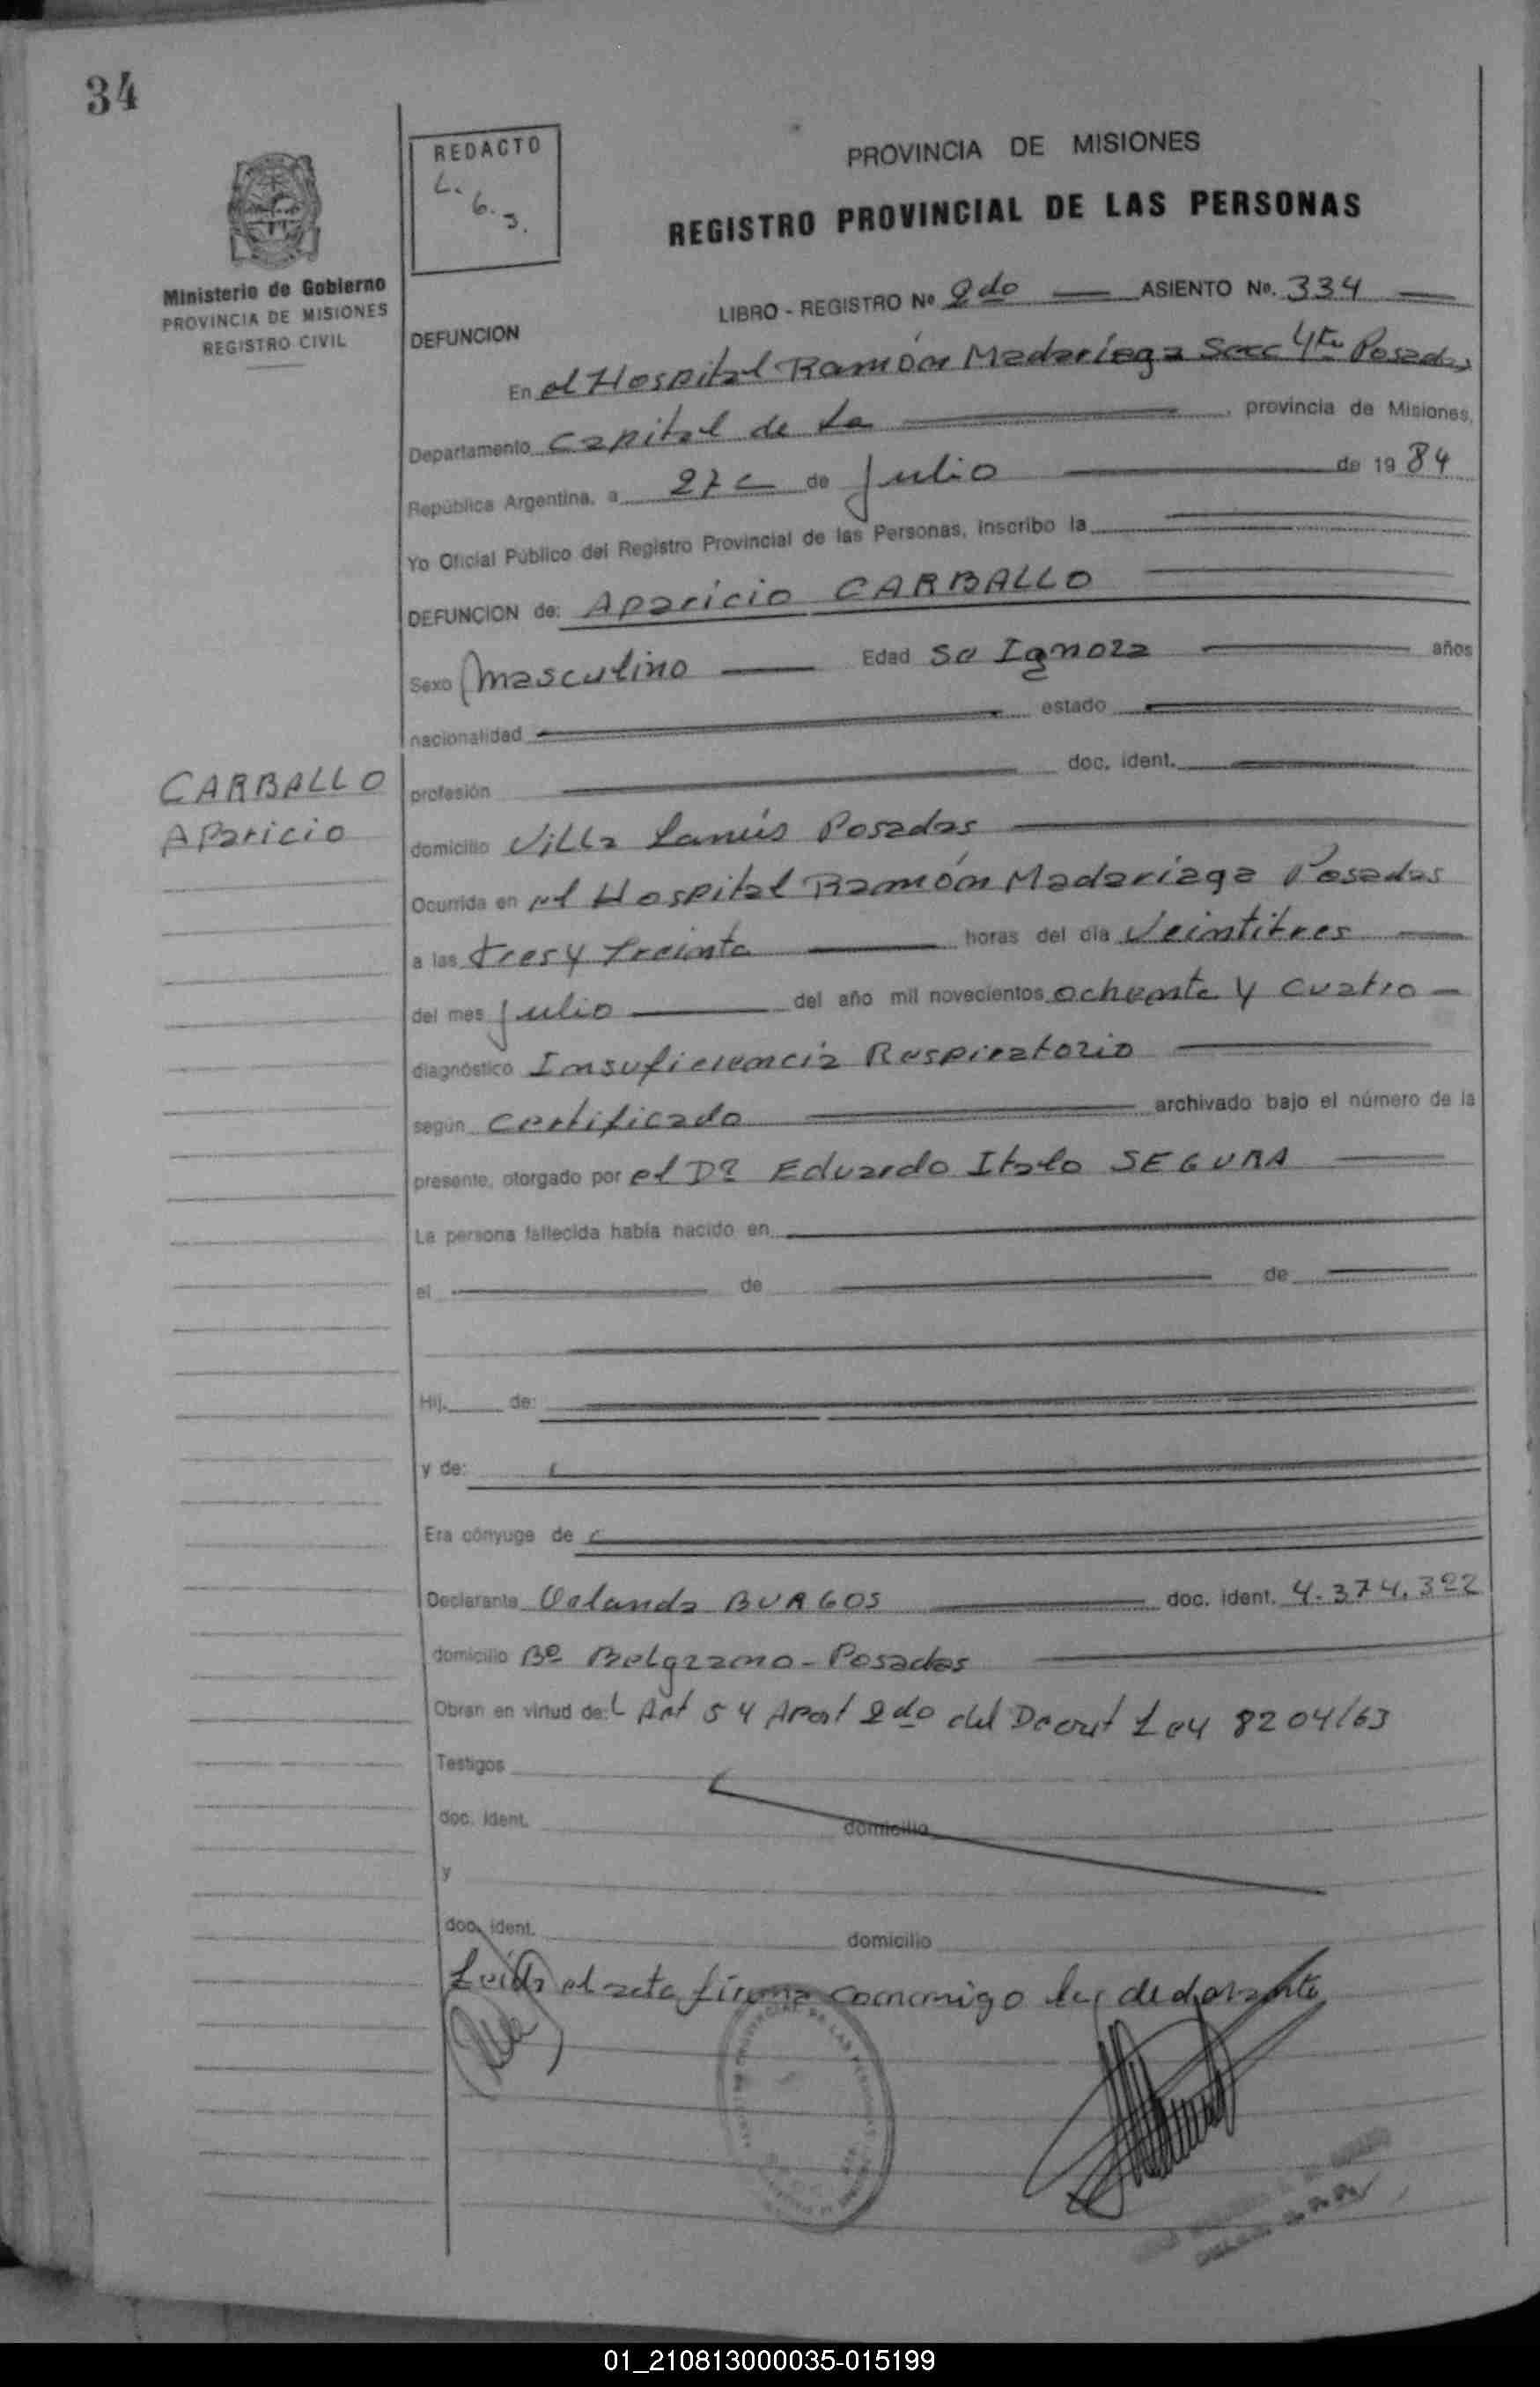 34
REDACTO
L.
6.
3.
Ministerio de Gobierno
PROVINCIA DE MISIONES
REGISTRO CIVIL
PROVINCIA DE MISIONES
REGISTRO PROVINCIAL DE LAS PERSONAS
LIBRO - REGISTRO Nº 2do ASIENTO No. 334
DEFUNCION
En el Hospital Ramón Madariaga Secc 4ta Posadas
Departamento Capital de La , provincia de Misiones,
República Argentina, a 27 de Julio de 1984
Yo Oficial Público del Registro Provincial de las Personas, inscribo la
DEFUNCION de: Aparicio CARBALLO
Sexo Masculino Edad Se Ignora años
nacionalidad estado
CARBALLO
Aparicio
profesión doc. ident.
domicilio Villa Lanús Posadas
Ocurrida en el Hospital Ramón Madariaga Posadas
a las tres y treinta horas del día Veintitres
del mes Julio del año mil novecientos ochenta y cuatro
diagnóstico Insuficiencia Respiratorio
según certificado archivado bajo el número de la
presente, otorgado por el Dr Eduardo Italo SEGURA
La persona fallecida había nacido en
el de de
Hij. de:
y de:
Era cónyuge de
Declarante BURGOS doc. ident. 4.374.322
domicilio Bº Belgrano - Posadas
Obran en virtud de: L Art 54 Apat 2do del Decret Ley 8204/63
Testigos
doc. ident. domicilio
y
doc. ident. domicilio
Leida el acta firma conmigo la declarante
01_210813000035-015199